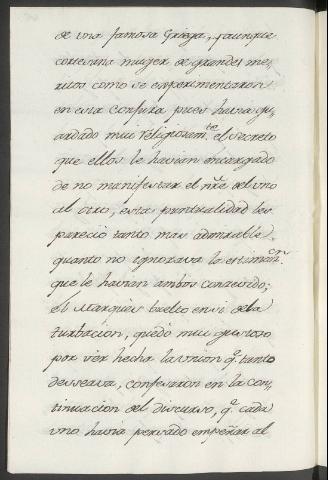 de una famosa Griega, y aunque
cortesana muger de grandes me-
ritos como se experimentaron
en esta conjura pues havia gu-
ardado mui religiosamte. el secreto
que ellos le havian encargado
de no manifestar el nre. del uno
al otro, esta puntualidad les
pareció tanto mas admirable,
quanto no ignorava la estimacn.
que le havian ambos conocido;
el Marqués buelto en si dela
turbacion, quedó mui gustoso
por ver hecha la union q. tanto
desseava, confesaron en la con-
tinuacion del discurso, q. cada
uno havia pensado empeñar al